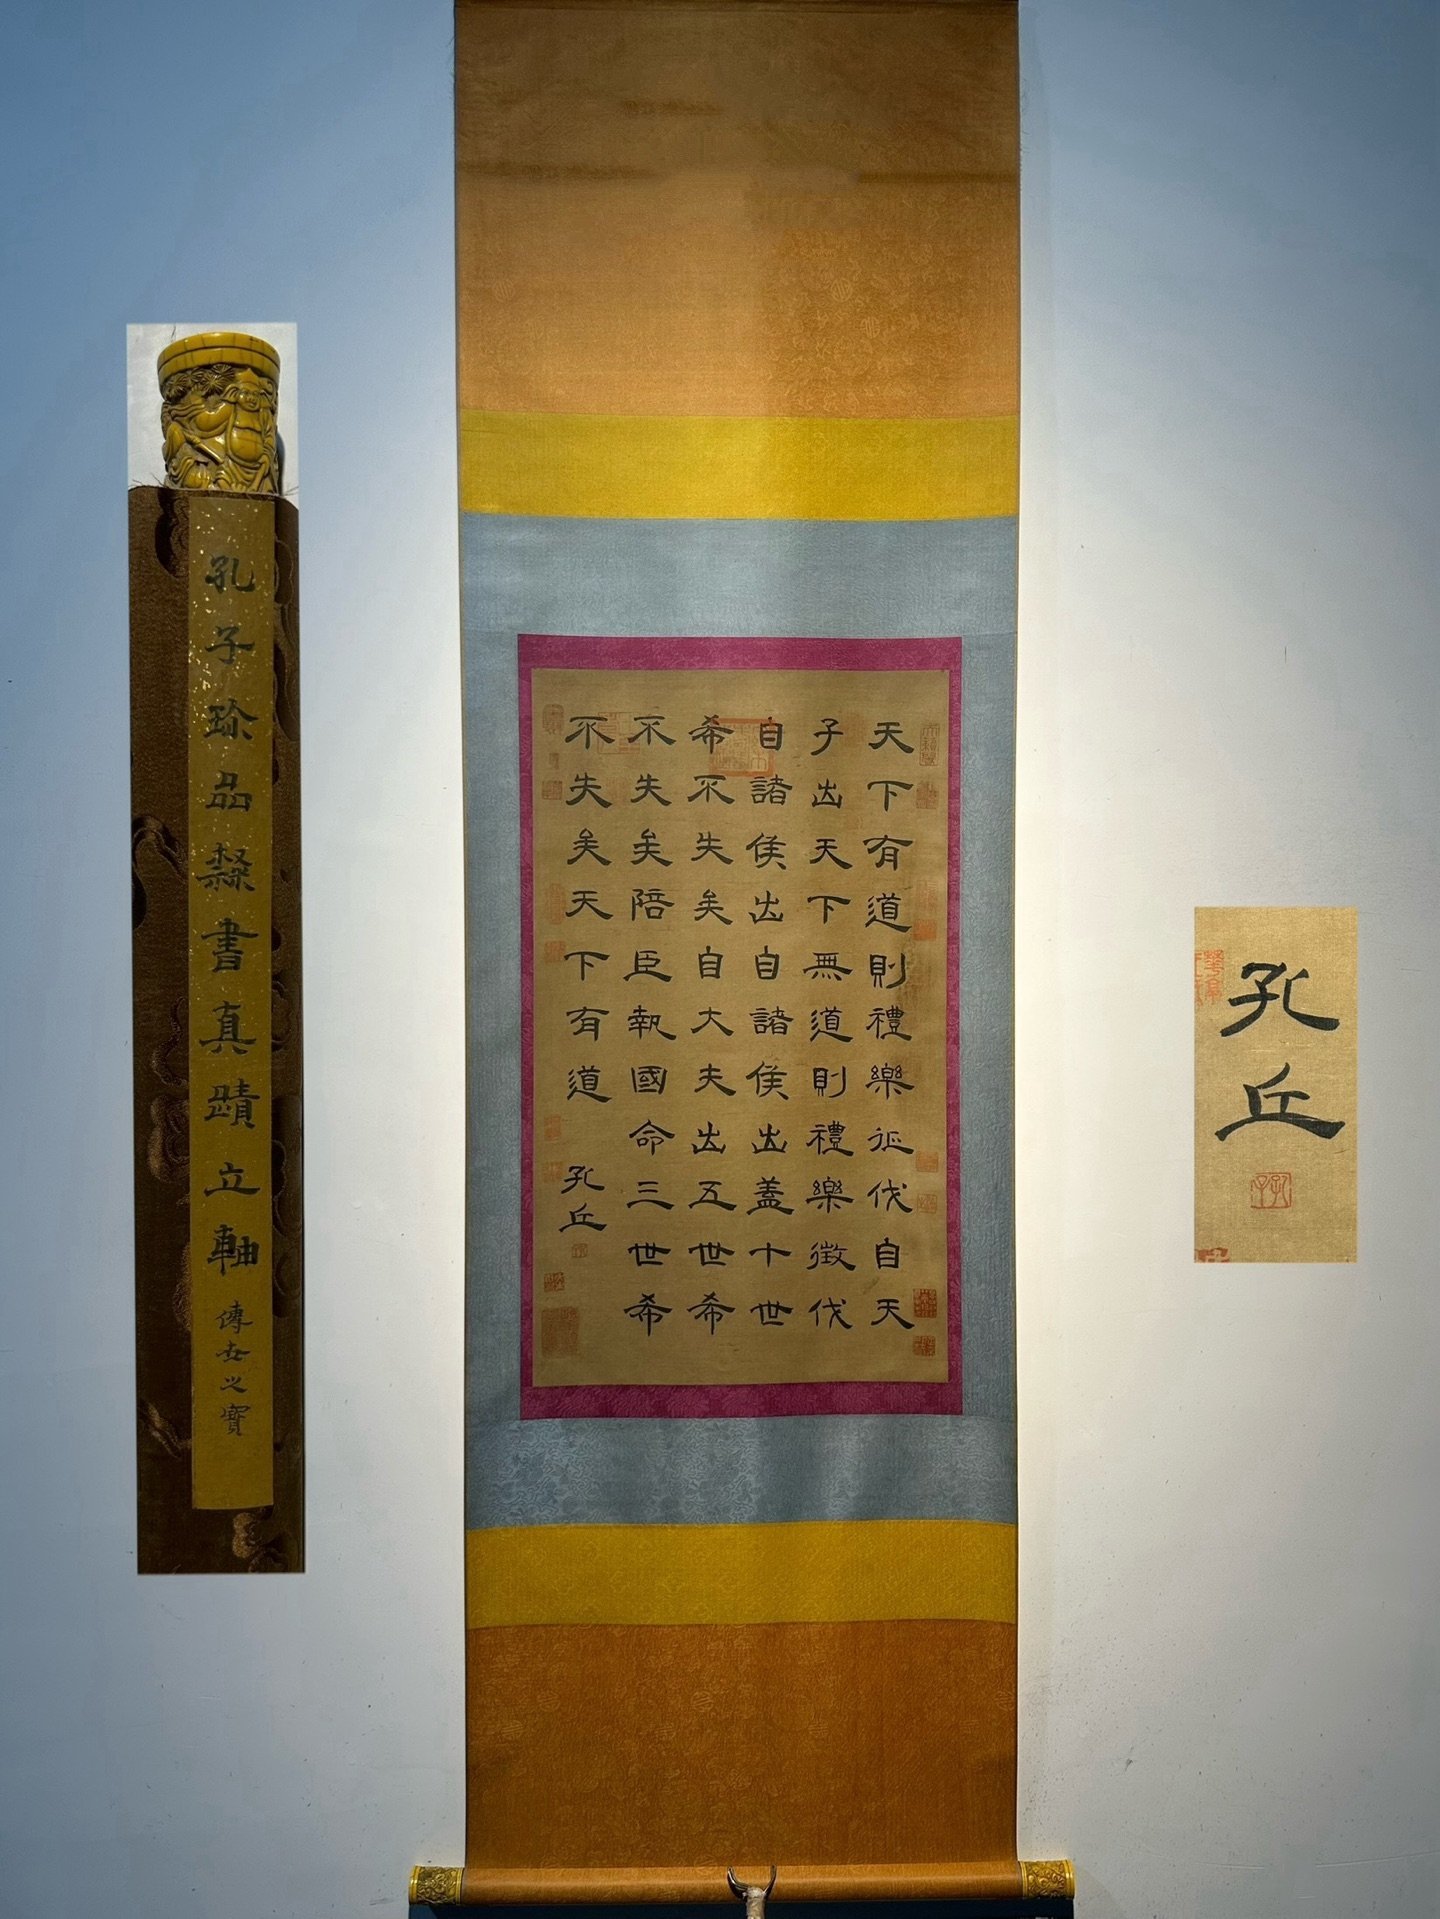 孔子珎品隸書真蹟立軸
傳世之寶
天下有道則禮樂征伐自天
子出天下無道則禮樂徵伐
自諸侯出自諸侯出蓋十世
希不失矣自大夫出五世希
不失矣陪臣執國命三世希
不失矣天下有道
孔丘
孔丘